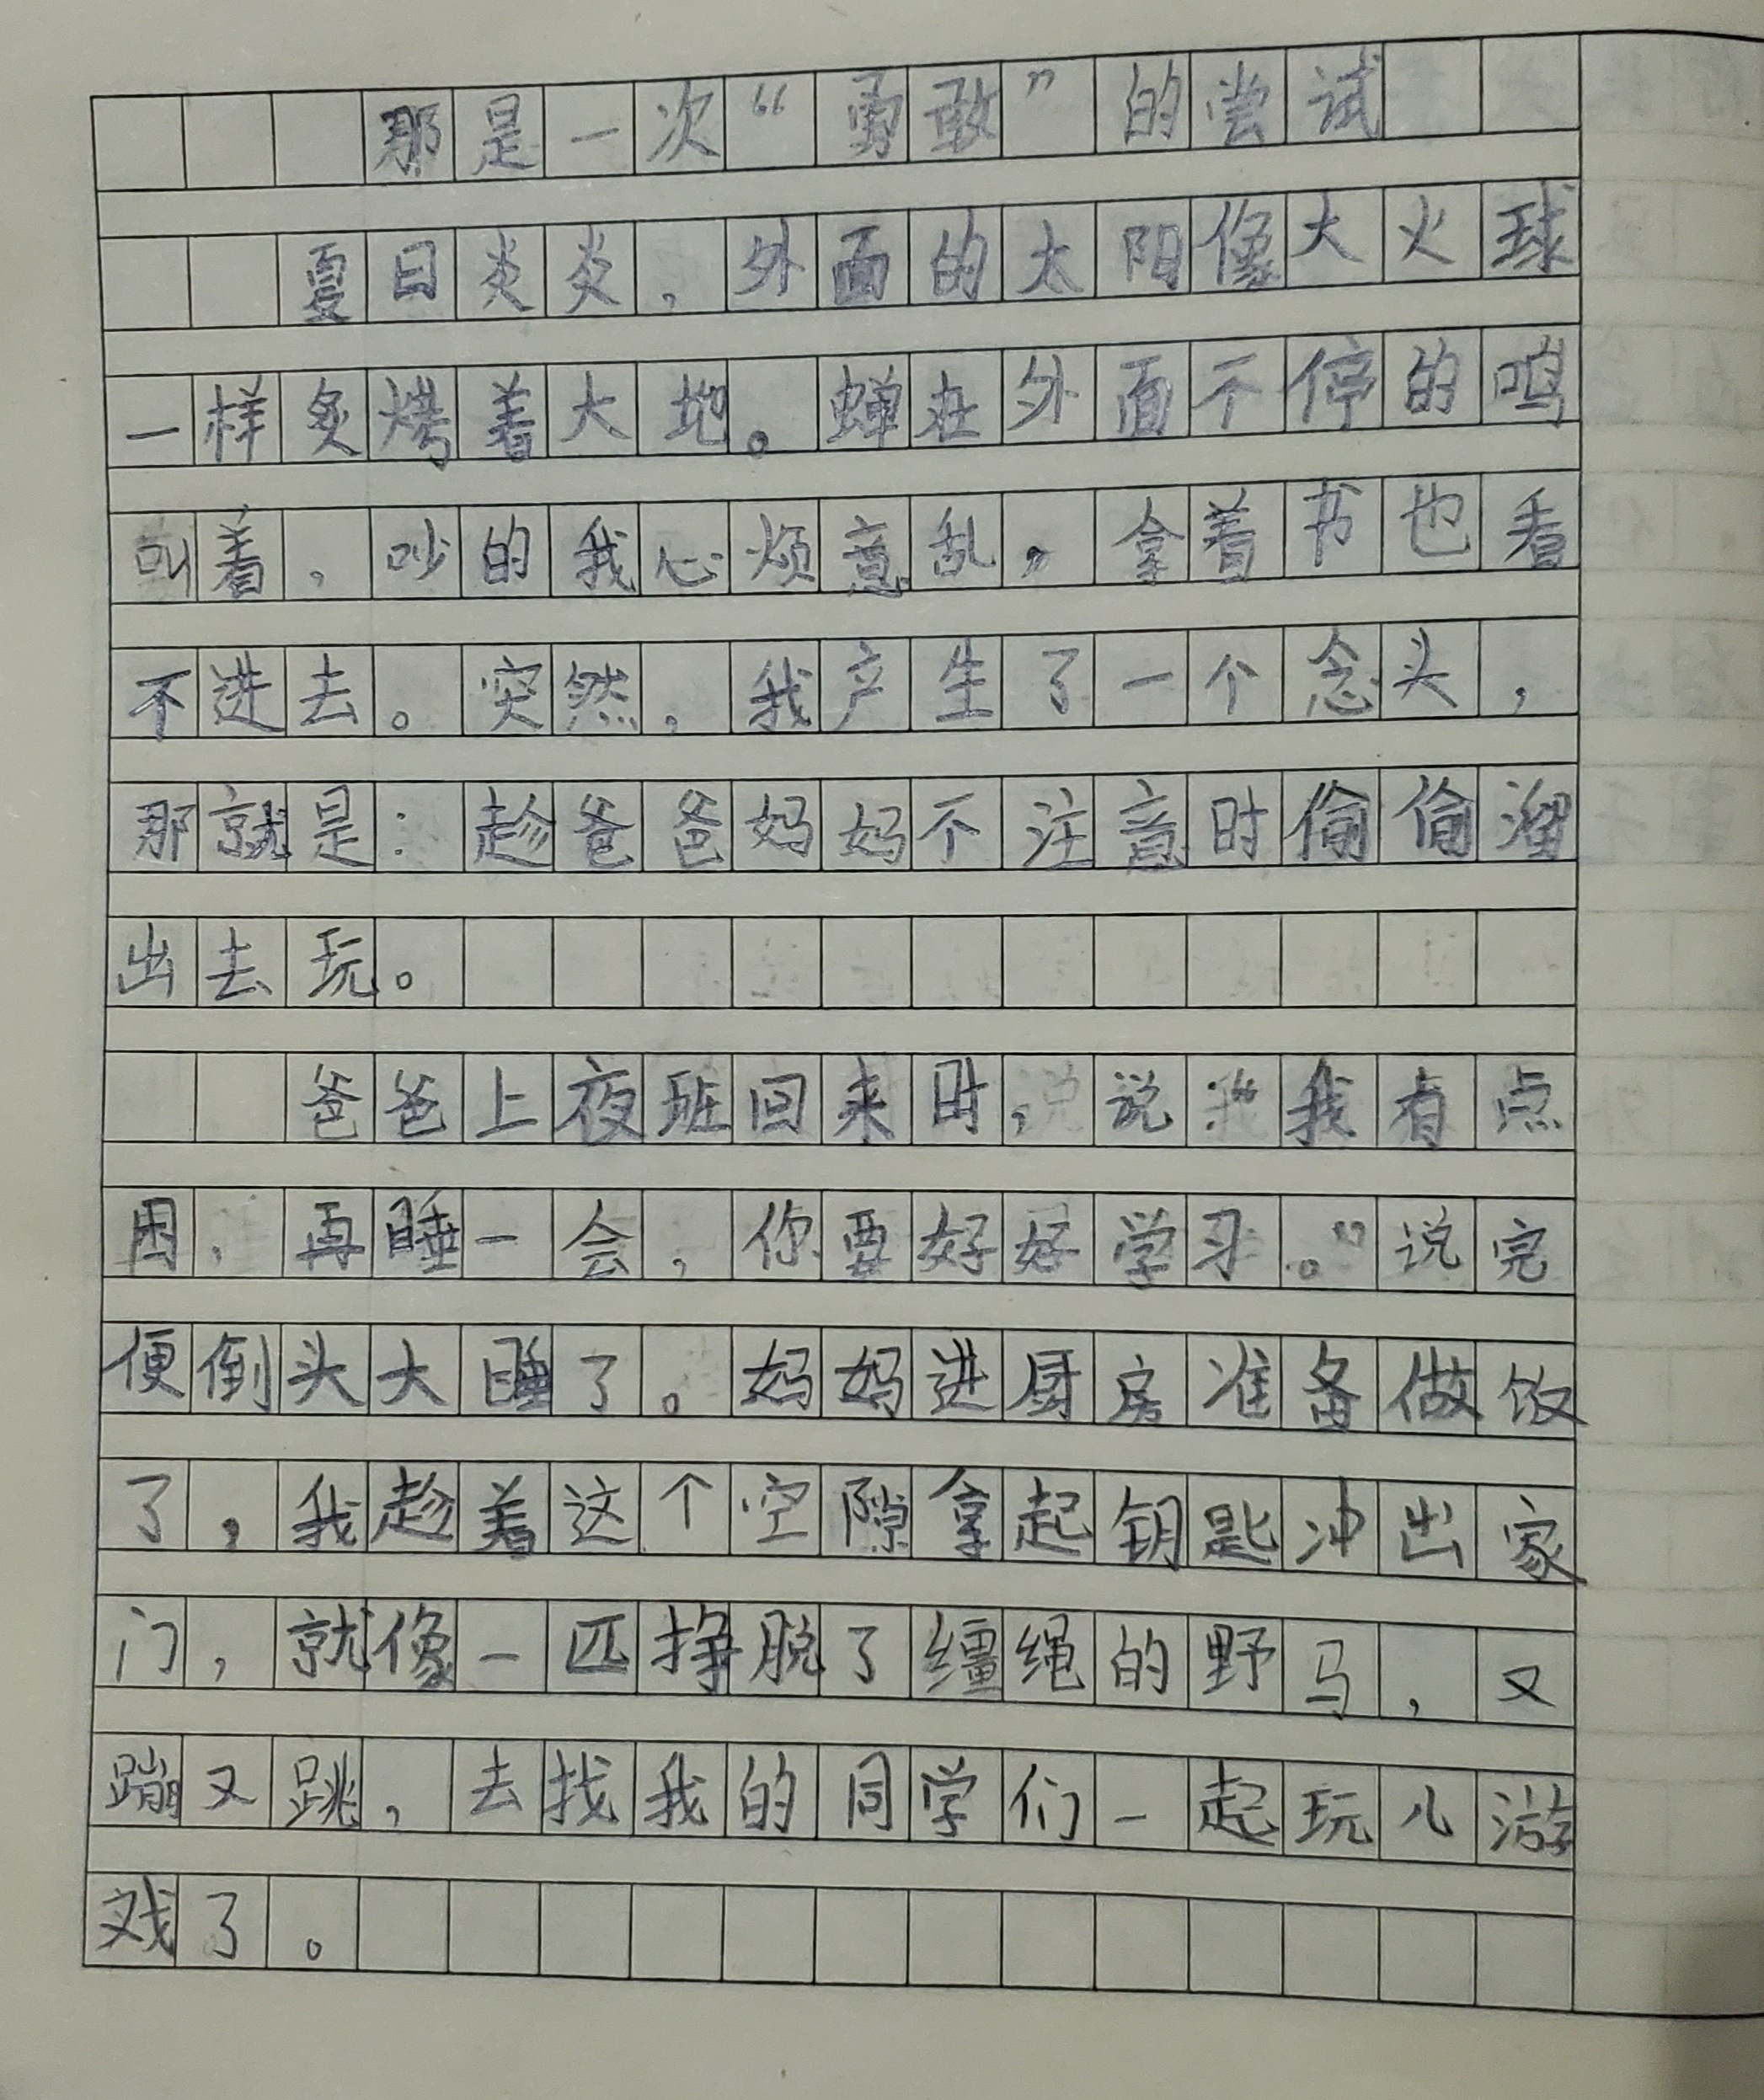 那是一次“勇敢”的尝试
夏日炎炎，外面的太阳像大火球
一样炙烤着大地。蝉在外面不停的鸣
叫着，吵的我心烦意乱，拿着书也看
不进去。突然，我产生了一个念头，
那就是：趁爸爸妈妈不注意时偷偷溜
出去玩。
爸爸上夜班回来时，说：“我有点
困，再睡一会，你要好好学习。”说完
便倒头大睡了。妈妈进厨房准备做饭
了，我趁着这个空隙拿起钥匙冲出家
门，就像一匹挣脱了缰绳的野马，又
蹦又跳，去找我的同学们一起玩儿游
戏了。